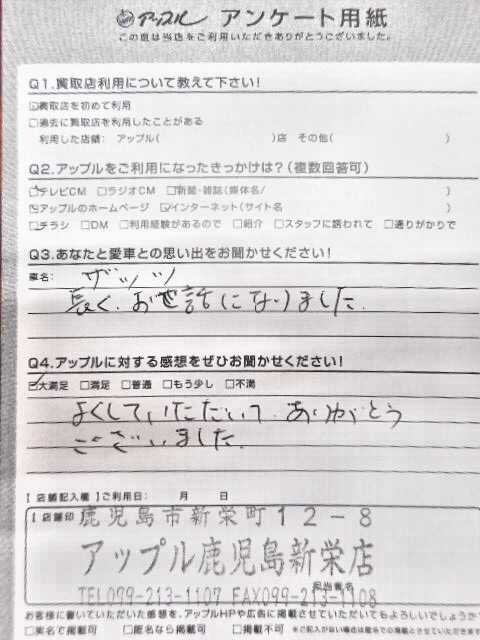 アップル アンケート用紙
この度は当店をご利用いただきありがとうございました。
Q1.買取店利用について教えて下さい!
☑買取店を初めて利用
□過去に買取店を利用したことがある
利用した店舗: アップル( )店 その他( )
Q2.アップルをご利用になったきっかけは?(複数回答可)
☑テレビCM □ラジオCM □新聞・雑誌(媒体名/ )
☑アップルのホームページ ☑インターネット(サイト名 )
□チラシ □DM □利用経験があるので □紹介 □スタッフに誘われて □通りがかりで
Q3.あなたと愛車との思い出をお聞かせください!
車名:
長く、お世話になりました.
Q4.アップルに対する感想をぜひお聞かせください!
☑大満足 □満足 □普通 □もう少し □不満
よくしていただいて、ありがとう
ございました.
【店舗記入欄】ご利用日: 月 日
【店舗印 鹿児島市新栄町12-8
アップル鹿児島新栄店
担当者名
TEL099-213-1107 FAX099-213-1108
お客様に書いていただいた感想を、アップルHPや広告に掲載させていただいてもよろしいでしょうか
□実名で掲載可 □匿名なら掲載可 □掲載不可